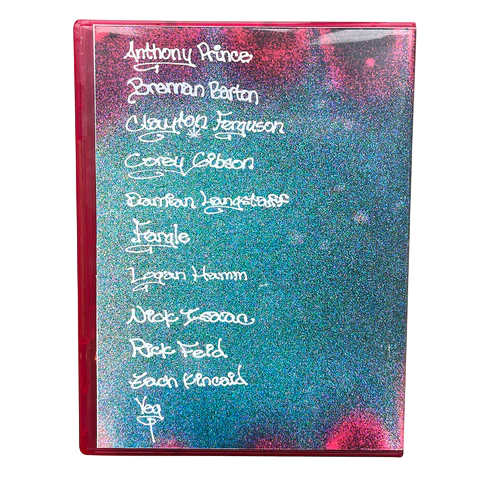 Anthony Prince
Brennan Barton
Clayton Ferguson
Corey Gibson
Damian Langstaff
Fangle
Logan Hamm
Nick Isaac
Rick Feid
Zach Kincaid